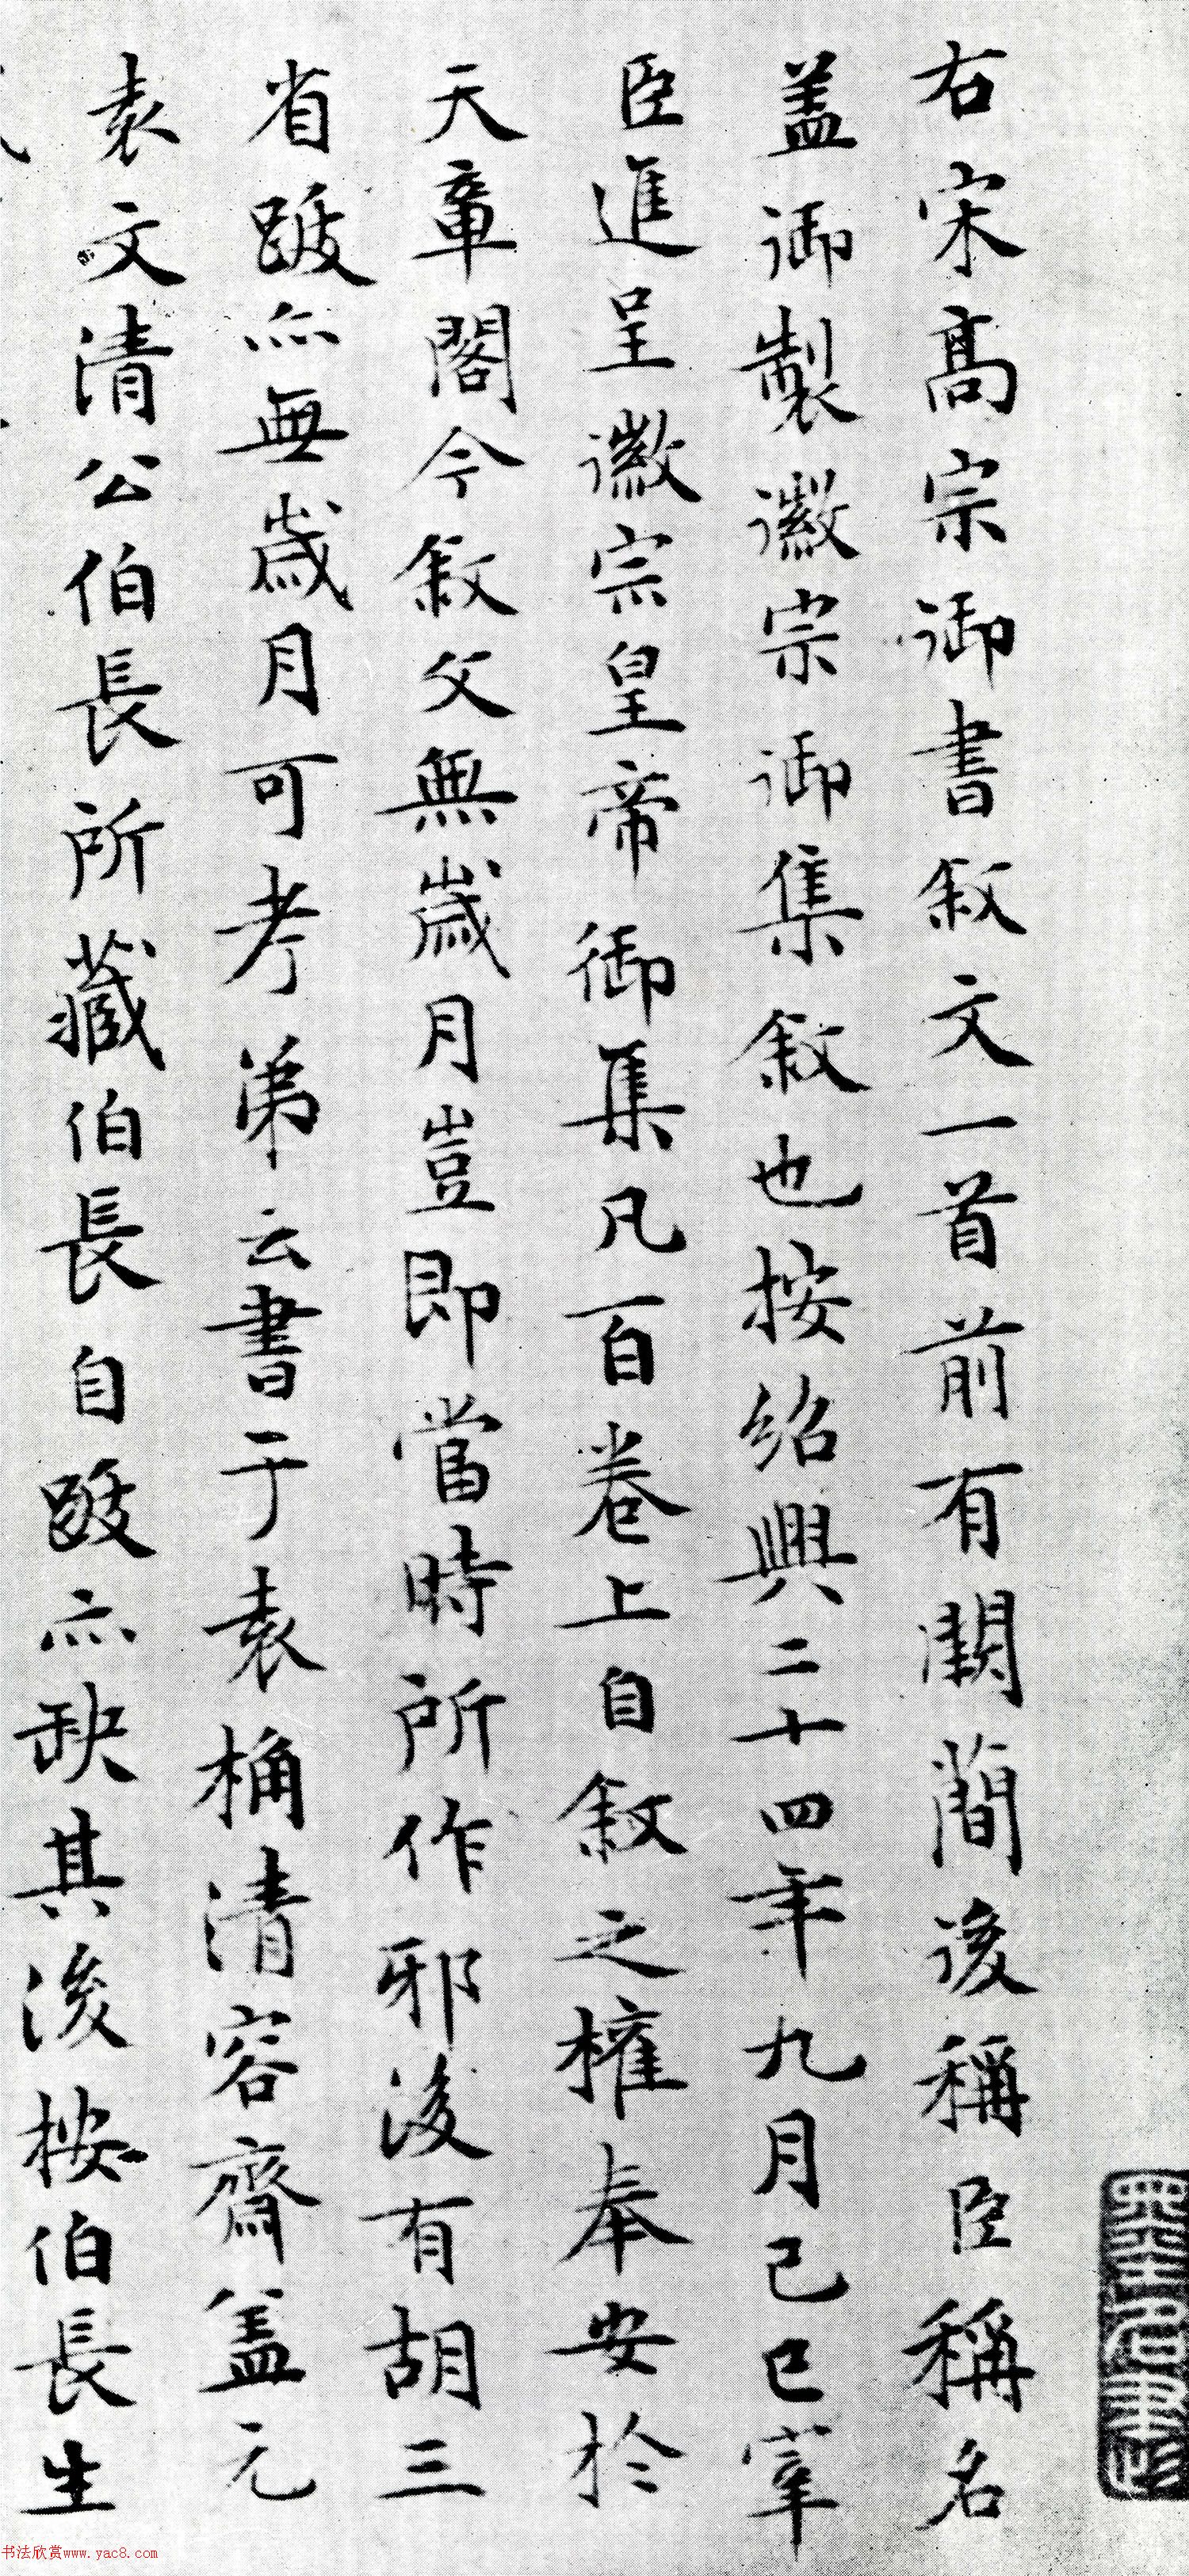 右宋高宗御書叙文一首前有闕簡後稱臣稱名
盖御製徽宗御集叙也按紹興二十四年九月己巳宰
臣進呈徽宗皇帝御集凡百卷上自叙之權奉安於
天章閣今叙文無歲月豈即當時所作邪後有胡三
省跋亦無歲月可考弟云書于袁桷清容齋盖元
袁文清公伯長所藏伯長自跋亦缺其後按伯長生
书法欣赏www.yac8.com